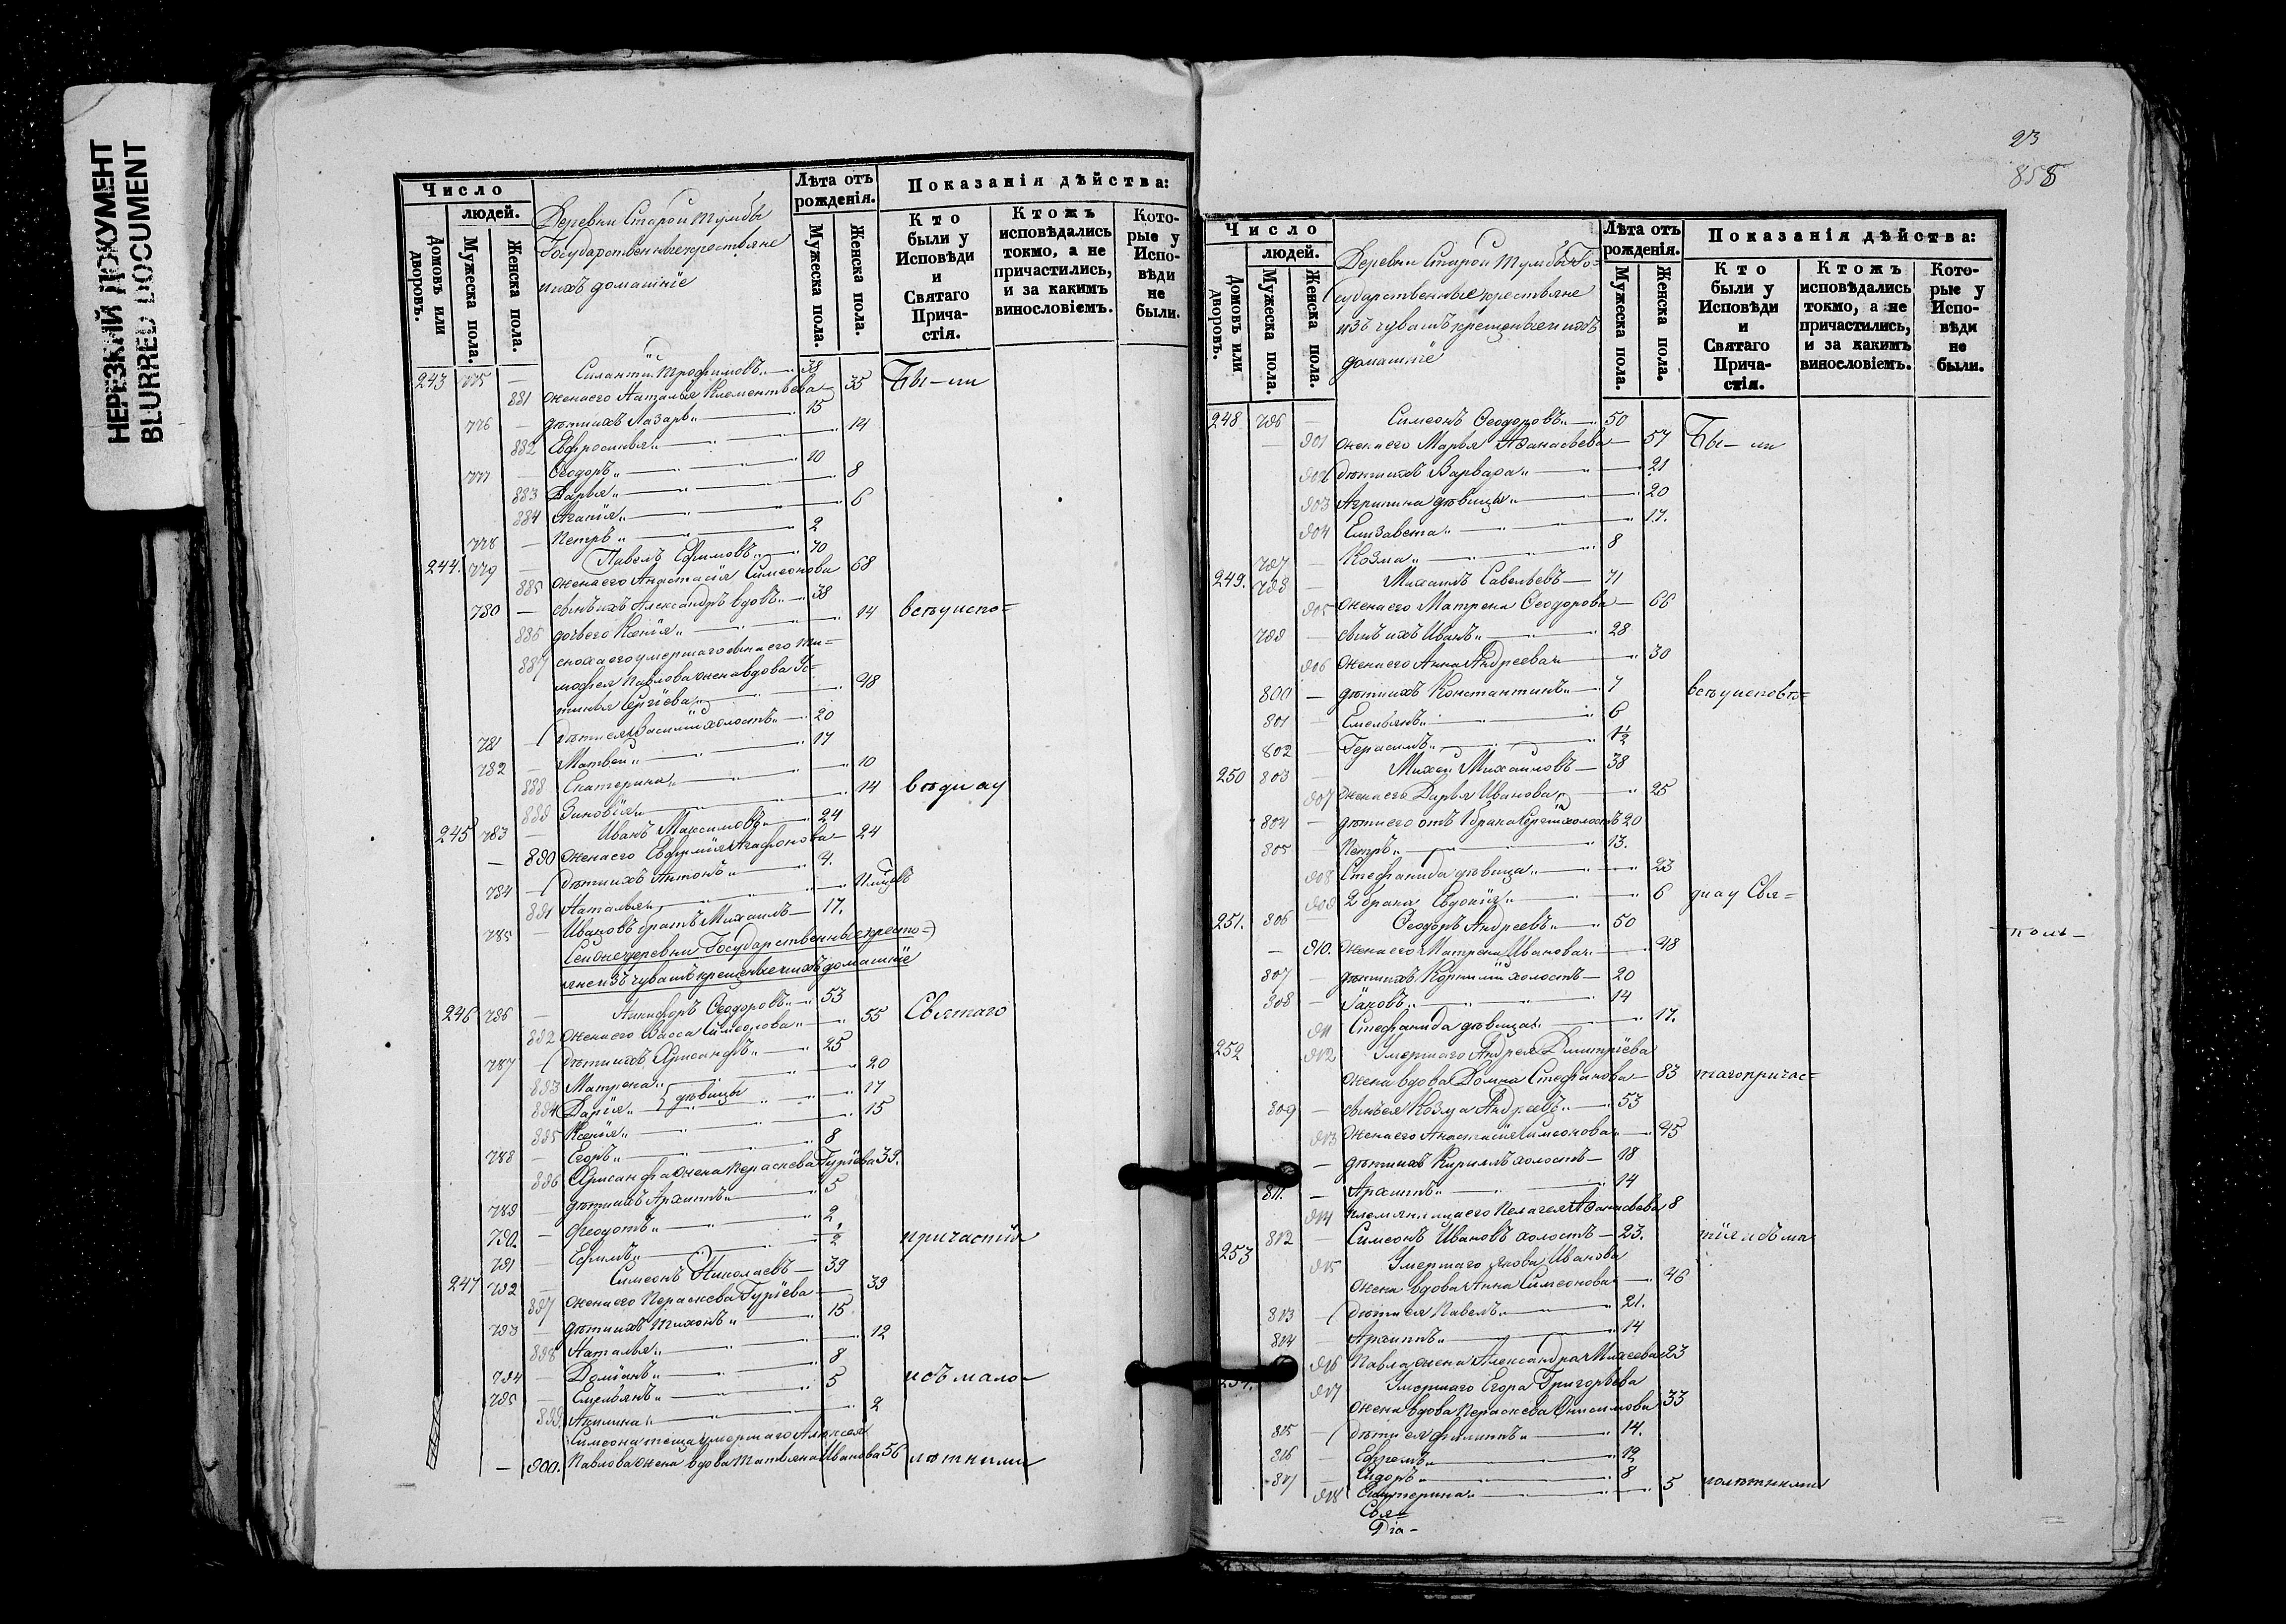 НЕРЕЗКИЙ ДОКУМЕНТ
BLURRED DOCUMENT
Число
людей.
Домовъ или дворовъ.
Мужеска пола.
Женска пола.
Деревни Старой Тумбы
Государственные крестьяне
и ихъ домашніе
Лѣта отъ рожденія.
Мужеска пола.
Женска пола.
Показанія дѣйства:
Кто были у Исповѣди и Святаго Прича-стія.
Ктожъ исповѣдались токмо, а не причастились, и за какимъ винословіемъ.
Кото-рые у Испо-вѣди не были.
243 775 — Силантій Трофимовъ 38
881 жена его Наталья Клементьева 35 Бы-ли
776 — дѣти ихъ Лазарь 15
882 Евфросинья 14
777 — Ѳеодоръ 10
883 Дарья 8
884 Агапія 6
778 — Петръ 2
244. 779 — Павелъ Ефимовъ 70
885 жена его Анастасія Симеонова 68
780 — сынъ ихъ Александръ вдовъ 38
886 дочь его Ксенія 14 всѣ у испо=
887 сноха его умершаго сына его Ти=
мофея Павлова жена вдова Ус=
тинья Сергіева 48
781 — дѣти ея Василій холостъ 20
782 — Матвей 17
888 Екатерина 10
889 Зиновія 14 вѣди и у
245 783 — Иванъ Максимовъ 24
— 890 жена его Евфимія Агафонова 24
784 — дѣти ихъ Антонъ 4.
891 Наталья
785 — Ивановъ братъ Михаилъ 17.
Сей же деревни Государственные кресть=
яне изъ чувашъ крещеные и ихъ домашніе
246 786 — Никифоръ Ѳеодоровъ 53
892 жена его Васса Симеонова 55 Святаго
787 — дѣти ихъ Хрисанфъ 25
893 Матрена 20
894 Дарія девицы 17
895 Ксенія 15
788 — Егоръ 8
896 Хрисанфа жена Параскева Гурьева 33.
789 — дѣти ихъ Архипъ 5
790. — Ѳеодотъ 2
791 — Ефимъ ½ причастія
247 792 — Симеонъ Николаевъ 39
897 жена его Параскева Гурьева 39
793 — дѣти ихъ Тихонъ 15
898 Наталья 12
794 — Даміанъ 8 и съ мало-
795 — Емельянъ 5
899 Акилина 2
Симеона теща умершаго Алексея
— 900. Павлова жена вдова Татьяна Иванова 56 лѣтними
23
858
Число
людей.
Домовъ или дворовъ.
Мужеска пола.
Женска пола.
Деревни Старой Тумбы Го=
сударственные крестьяне
изъ чувашъ крещеные и ихъ
домашніе
Лѣта отъ рожденія.
Мужеска пола.
Женска пола.
Показанія дѣйства:
Кто были у Исповѣди и Святаго Прича-стія.
Ктожъ исповѣдались токмо, а не причастились, и за какимъ винословіемъ.
Кото-рые у Испо-вѣди не были.
248 796 — Симеонъ Ѳеодоровъ 50
— 901 жена его Марья Аѳанасьева 57 Бы-ли
902 дѣти ихъ Варвара 21
903 Агрипина дѣвицы 20
904 Елизавета 17.
797 — Козма 8
249. 798 — Михаилъ Савельевъ 71
905 жена его Матрена Ѳеодорова 66
799 — сынъ ихъ Иванъ 28
906 жена его Анна Андреева 30
800 — дѣти ихъ Константинъ 7 всѣ у исповѣ=
801 — Емельянъ 6
802 — Герасимъ 1½
250 803 — Михей Михаиловъ 38
907 жена его Дарья Иванова 25
804 — дѣти его отъ 1 брака Сергій холостъ 20
805 — Петръ 13.
908 Стефанида дѣвица 23
909 2 брака Евдокія 6 ди и у Свя=
251. 806 — Ѳеодоръ Андреевъ 50
— 910. жена его Матрена Иванова 48
807 — дѣти ихъ Корнилій холостъ 20
808 — Іаковъ 14
911 Стефанида дѣвица 17.
252 912 Умершаго Андрея Димитріева
жена вдова Домна Стефанова 83 таго причас=
809 — сынъ ея Козма Андреевъ 53
913 жена его Анастасія Симеонова 45
— дѣти ихъ Кириллъ холостъ 18
811. — Архипъ 14
914 племянница его Пелагея Аѳанасьева 8
812 — Симеонъ Ивановъ холостъ 23. тія и съ ма
253 915 Умершаго Якова Иванова
жена вдова Анна Симеонова 46
813 — дѣти ея Павелъ 21.
814 — Архипъ 14
916 Павла жена Александра Михеева 23
254. 917 Умершаго Егора Григорьева
жена вдова Параскева Онисимова 33
815 — дѣти ея Филиппъ 14.
816 — Ефремъ 12
817 — Сидоръ 8
918 Екатерина 5 лолѣтними
Свя=
Діа-